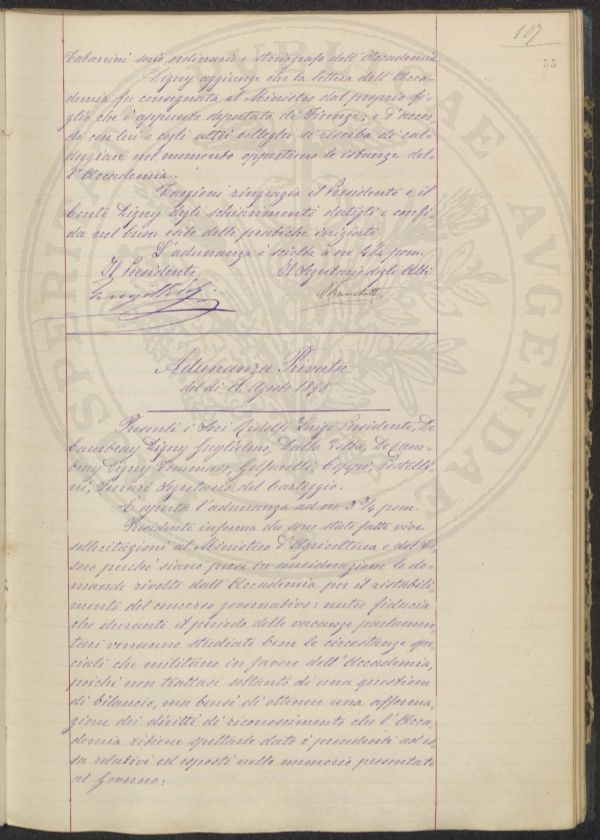 107
55
Tabarrini socio ordinario e stenografo dell'Accademia
Digny aggiunge che la lettera dell'Acca-
demia fu consegnata al Ministro dal proprio fi-
glio che è appunto deputato di Firenze; e d'accor-
do con lui e cogli altri colleghi si riserba di cal-
deggiare nel momento opportuno le istanze del-
l'Accademia.
Targioni ringrazia il Presidente e il
Conte Digny degli schiarimenti datigli e confi-
da nel buon esito delle pratiche iniziate.
L'adunanza è sciolta a ore pom.
Il Presidente Il Segretario degli Atti
Adunanza Privata
del dì Agosto 1895
Presenti i Soci Ridolfi Luigi Presidente, De
Cambray Digny Guglielmo, Dalla Volta, De Cam-
bray Digny Tommaso, Passerini, Pestelli-
ni, Segretario del Carteggio.
È aperta l'adunanza ad ore 3 3/4 pom.
Presidente informa che sono state fatte vive
sollecitazioni al Ministero d'Agricoltura e del Te-
soro perché siano prese in considerazione le do-
mande rivolte dall'Accademia per il ristabili-
mento del concorso governativo: nutre fiducia
che durante il periodo delle vacanze parlamen-
tari verranno studiate bene le circostanze spe-
ciali che militano in favore dell'Accademia,
poiché non trattasi soltanto di una questione
di bilancio, ma bensì di ottenere una afferma-
zione dei diritti di riconoscimento che l'Acca-
demia ritiene spettarle dato i precedenti ad es-
sa relativi ed esposti nelle memorie presentate
al Governo:
PROSPERITATI PUBLICAE AUGENDAE